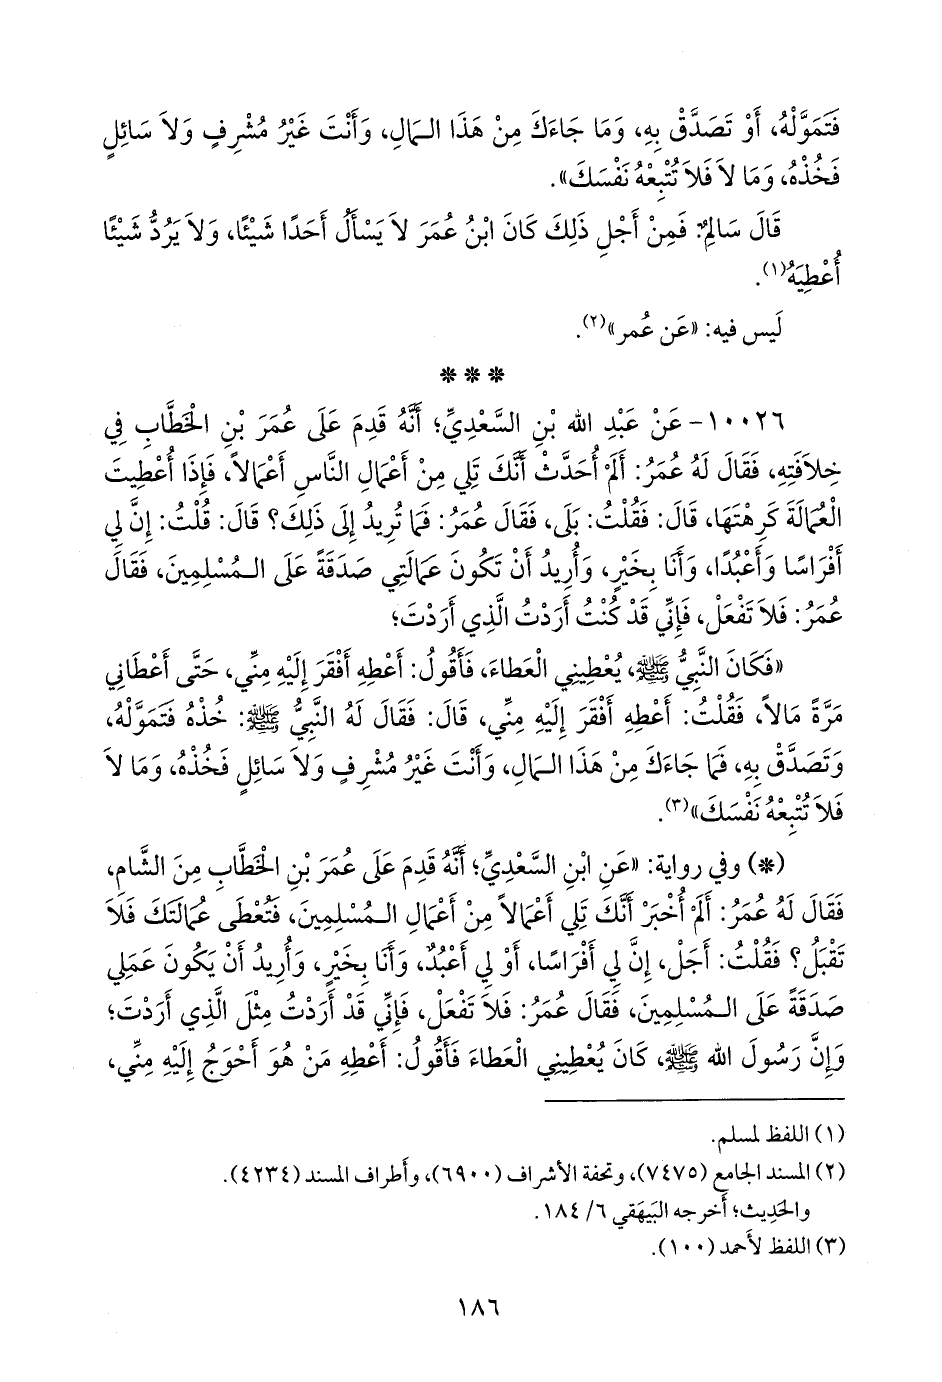 فَتَمَوَّلْهُ، أَوْ تَصَدَّقْ بِهِ، وَمَا جَاءَكَ مِنْ هَذَا الـمَالِ، وَأَنْتَ غَيْرُ مُشْرِفٍ وَلاَ سَائِلٍ
فَخُذْهُ، وَمَا لاَ فَلاَ تُتْبِعْهُ نَفْسَكَ».
قَالَ سَالِمٌ: فَمِنْ أَجْلِ ذَلِكَ كَانَ ابْنُ عُمَرَ لاَ يَسْأَلُ أَحَدًا شَيْئًا، وَلاَ يَرُدُّ شَيْئًا
أُعْطِيَهُ(١).
لَيس فيه: «عَن عُمر»(٢).
* * *
١٠٠٢٦- عَنْ عَبْدِ الله بْنِ السَّعْدِيِّ؛ أَنَّهُ قَدِمَ عَلَى عُمَرَ بْنِ الْخَطَّابِ فِي
خِلاَفَتِهِ، فَقَالَ لَهُ عُمَرُ: أَلَمْ أُحَدَّثْ أَنَّكَ تَلِي مِنْ أَعْمَالِ النَّاسِ أَعْمَالاً، فَإِذَا أُعْطِيتَ
الْعُمَالَةَ كَرِهْتَهَا، قَالَ: فَقُلْتُ: بَلَى، فَقَالَ عُمَرُ: فَمَا تُرِيدُ إِلَى ذَلِكَ؟ قَالَ: قُلْتُ: إِنَّ لِي
أَفْرَاسًا وَأَعْبُدًا، وَأَنَا بِخَيْرٍ، وَأُرِيدُ أَنْ تَكُونَ عَمَالَتِي صَدَقَةً عَلَى الـمُسْلِمِينَ، فَقَالَ
عُمَرُ: فَلاَ تَفْعَلْ، فَإِنِّي قَدْ كُنْتُ أَرَدْتُ الَّذِي أَرَدْتَ؛
«فَكَانَ النَّبِيُّ ﷺ، يُعْطِينِي الْعَطَاءَ، فَأَقُولُ: أَعْطِهِ أَفْقَرَ إِلَيْهِ مِنِّي، حَتَّى أَعْطَانِي
مَرَّةً مَالاً، فَقُلْتُ: أَعْطِهِ أَفْقَرَ إِلَيْهِ مِنِّي، قَالَ: فَقَالَ لَهُ النَّبِيُّ ﷺ: خُذْهُ فَتَمَوَّلْهُ،
وَتَصَدَّقْ بِهِ، فَمَا جَاءَكَ مِنْ هَذَا الـمَالِ، وَأَنْتَ غَيْرُ مُشْرِفٍ وَلاَ سَائِلٍ فَخُذْهُ، وَمَا لاَ
فَلاَ تُتْبِعْهُ نَفْسَكَ»(٣).
(*) وفي رواية: «عَنِ ابْنِ السَّعْدِيِّ؛ أَنَّهُ قَدِمَ عَلَى عُمَرَ بْنِ الْخَطَّابِ مِنَ الشَّامِ،
فَقَالَ لَهُ عُمَرُ: أَلَمْ أُخْبَرْ أَنَّكَ تَلِي أَعْمَالاً مِنْ أَعْمَالِ الـمُسْلِمِينَ، فَتُعْطَى عُمَالَتَكَ فَلاَ
تَقْبَلُ؟ فَقُلْتُ: أَجَلْ، إِنَّ لِي أَفْرَاسًا، أَوْ لِي أَعْبُدٌ، وَأَنَا بِخَيْرٍ، وَأُرِيدُ أَنْ يَكُونَ عَمَلِي
صَدَقَةً عَلَى الـمُسْلِمِينَ، فَقَالَ عُمَرُ: فَلاَ تَفْعَلْ، فَإِنِّي قَدْ أَرَدْتُ مِثْلَ الَّذِي أَرَدْتَ؛
وَإِنَّ رَسُولَ الله ﷺ، كَانَ يُعْطِينِي الْعَطَاءَ فَأَقُولُ: أَعْطِهِ مَنْ هُوَ أَحْوَجُ إِلَيْهِ مِنِّي،
(١) اللفظ لمسلم.
(٢) المسند الجامع (٧٤٧٥)، وتحفة الأشراف (٦٩٠٠)، وأطراف المسند (٤٢٣٤).
والحَدِيث؛ أَخرجه البَيهَقي ٦/ ١٨٤.
(٣) اللفظ لأحمد (١٠٠).
١٨٦